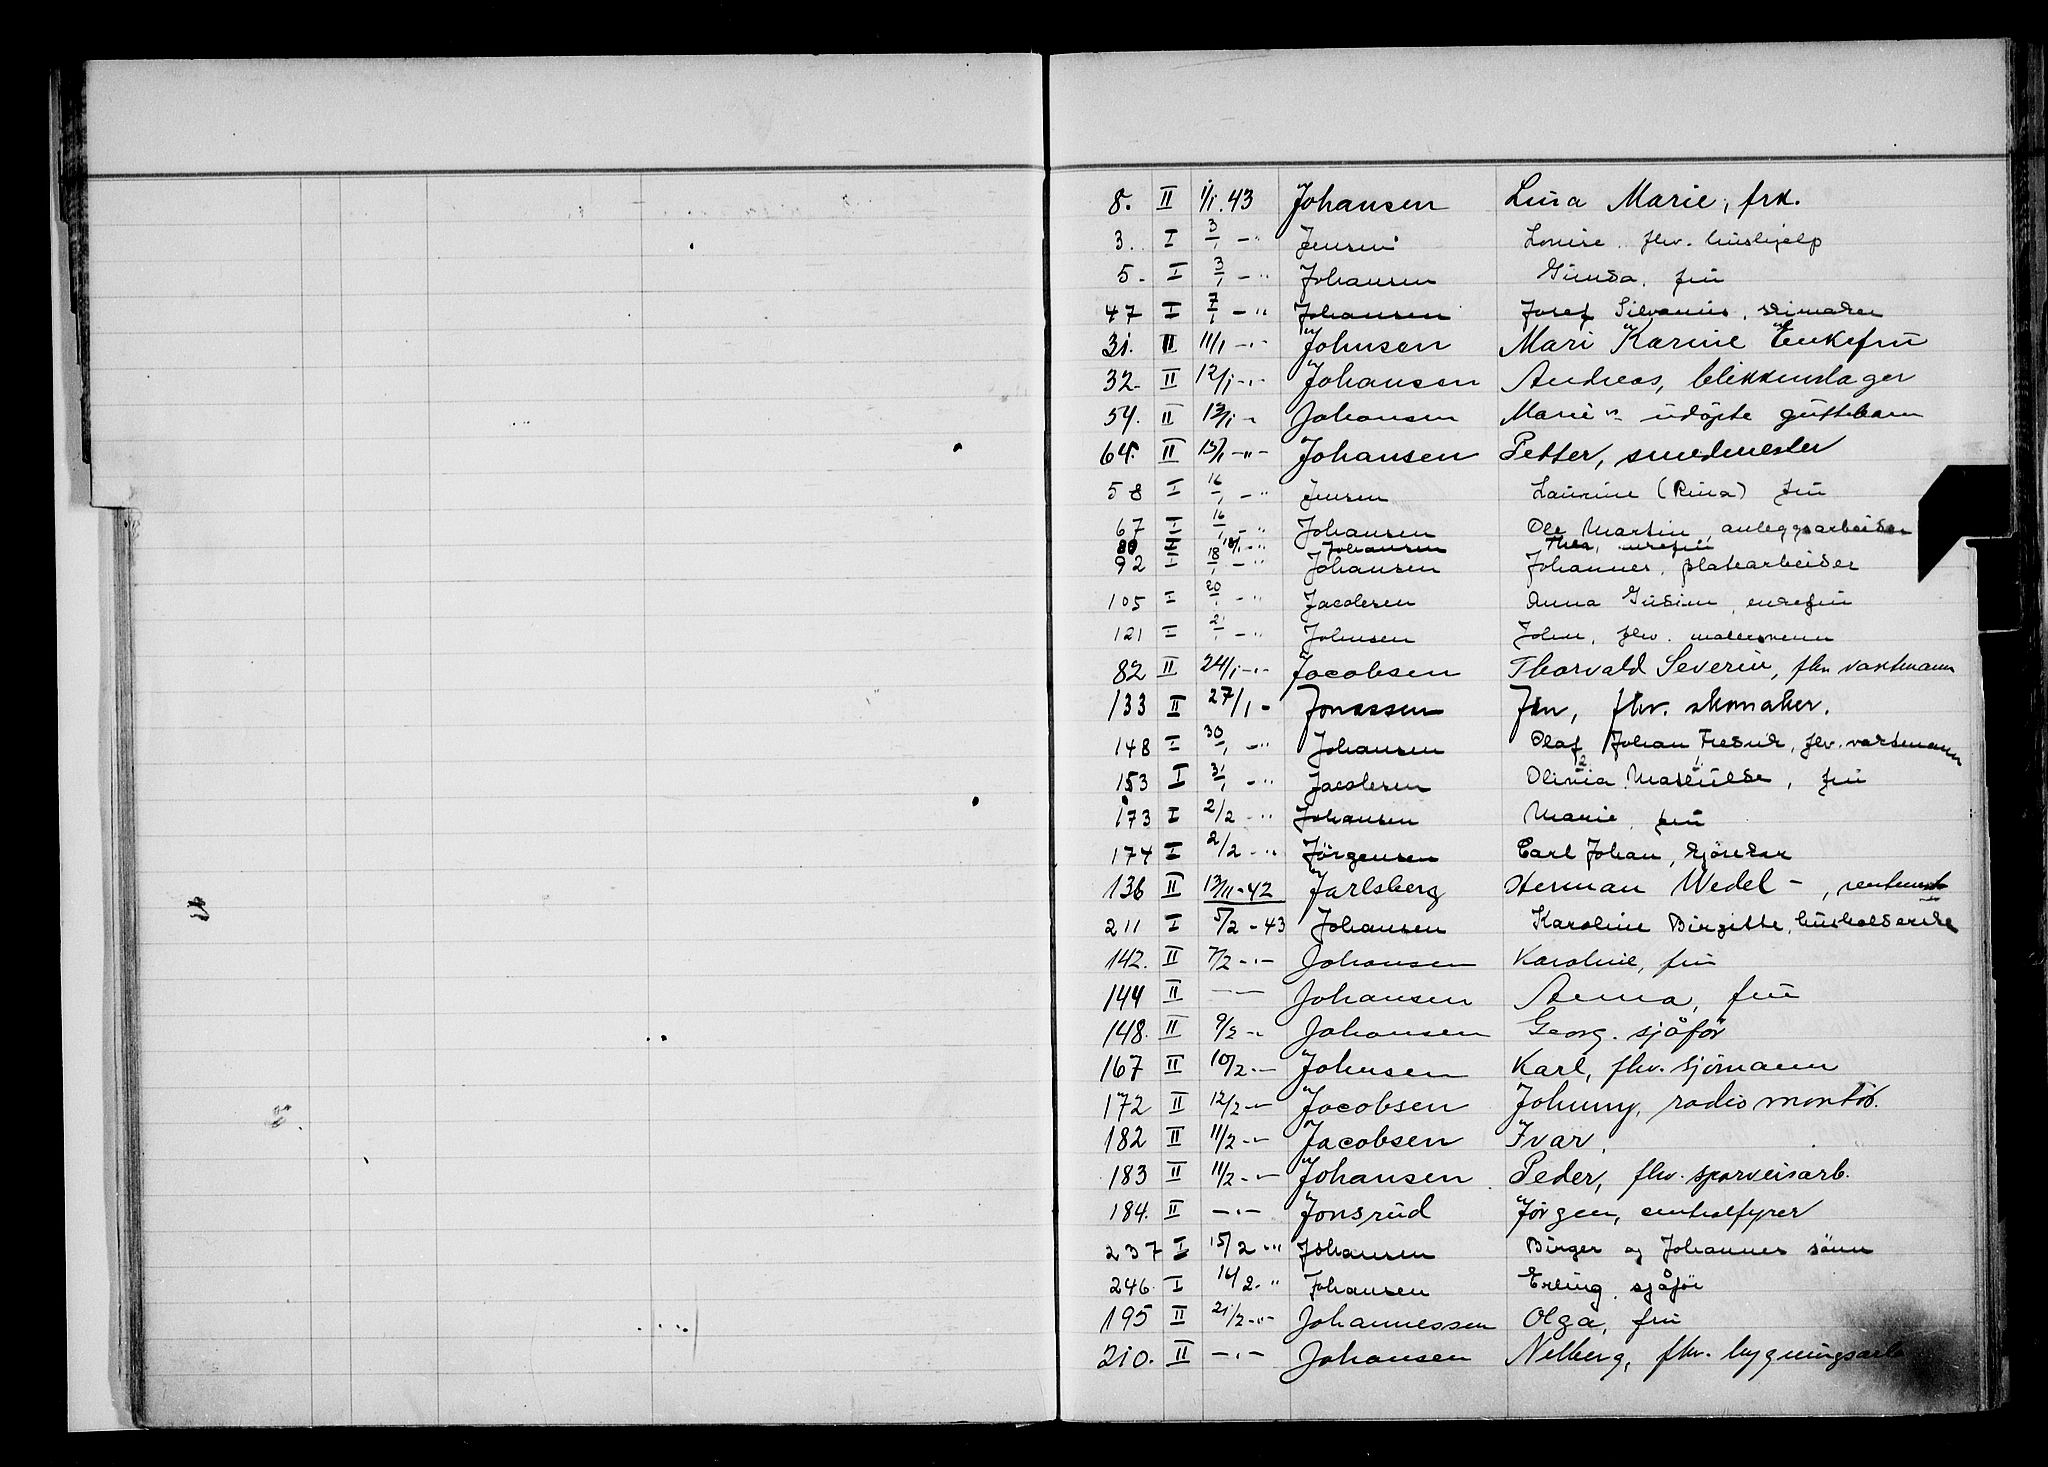 8. II 1/1. 43 Johansen Lina Marie, frk.
3. I 3/1 -" Jensen Louise. fhv. hushjelp
5. I 3/1 -" Johansen Gunda, fru
47 I 7/1 -" Johansen Josef Silvanus, skimaker
31. II 11/1 -"- Johnsen Mari Karine Enkefru
32. II 12/1 -"- Johansen Andreas, blikkenslager
54. II 13/1 - Johansen Marie's udøpte guttebarn
64. II 15/1 -"- Johansen Petter, smedmester
58 I 16/1 -" Jensen Laurine (Rina) fru
67 I 16/1 -" Johansen Ole Martin, anleggsarbeider
80 I 18/1 -" Johansen Thea, enkefru
92 I 18/1 -" Johansen Johannes, platearbeider
105 I 20/1 -" Jacobsen Anna Gusine, enkefru
121 I 21/1 -" Johnsen John, fhv. malersvenn
82 II 24/1 -"- Jacobsen Thorvald Severin, fhv vaktmann
133 II 27/1 - Jonassen Jon, fhv. skomaker.
148 I 30/1 -" Johansen Olaf Johan Fredrik, fhv. vaktmann
153 I 31/1 -" Jacobsen Olivia Mathilde, fru
173 I 2/2 -" Johansen Marie, fru
174 I 2/2 -" Jørgensen Carl Johan, kjørekar
136 II 13/11-42 Jarlsberg Herman Wedel -,
211 I 5/2 - 43 Johansen Karoline Birgitte, husholderske
142. II 7/2 -"- Johansen Karoline, fru
144 II -"- Johansen Anna, fru
148. II 9/2 -"- Johansen Georg. sjåfør
167 II 10/2 -"- Johnsen Karl, fhv. sjømann
172 II 12/2 -"- Jacobsen Johnny, radiomontør.
182 II 11/2 -"- Jacobsen Ivar,
183 II 11/2 -"- Johansen Peder, fhv. sporveisarb.
184. II -"- Jonsrud Jørgen, centralfyrer
237 I 15/2 -" Johansen Birger og Johannes sønn
246 I 16/2 -" Johansen Erling. sjåfør
195 II 21/2 -"- Johannessen Olga, fru
210. II -"- Johansen Nelberg, fhv. bygningsarb